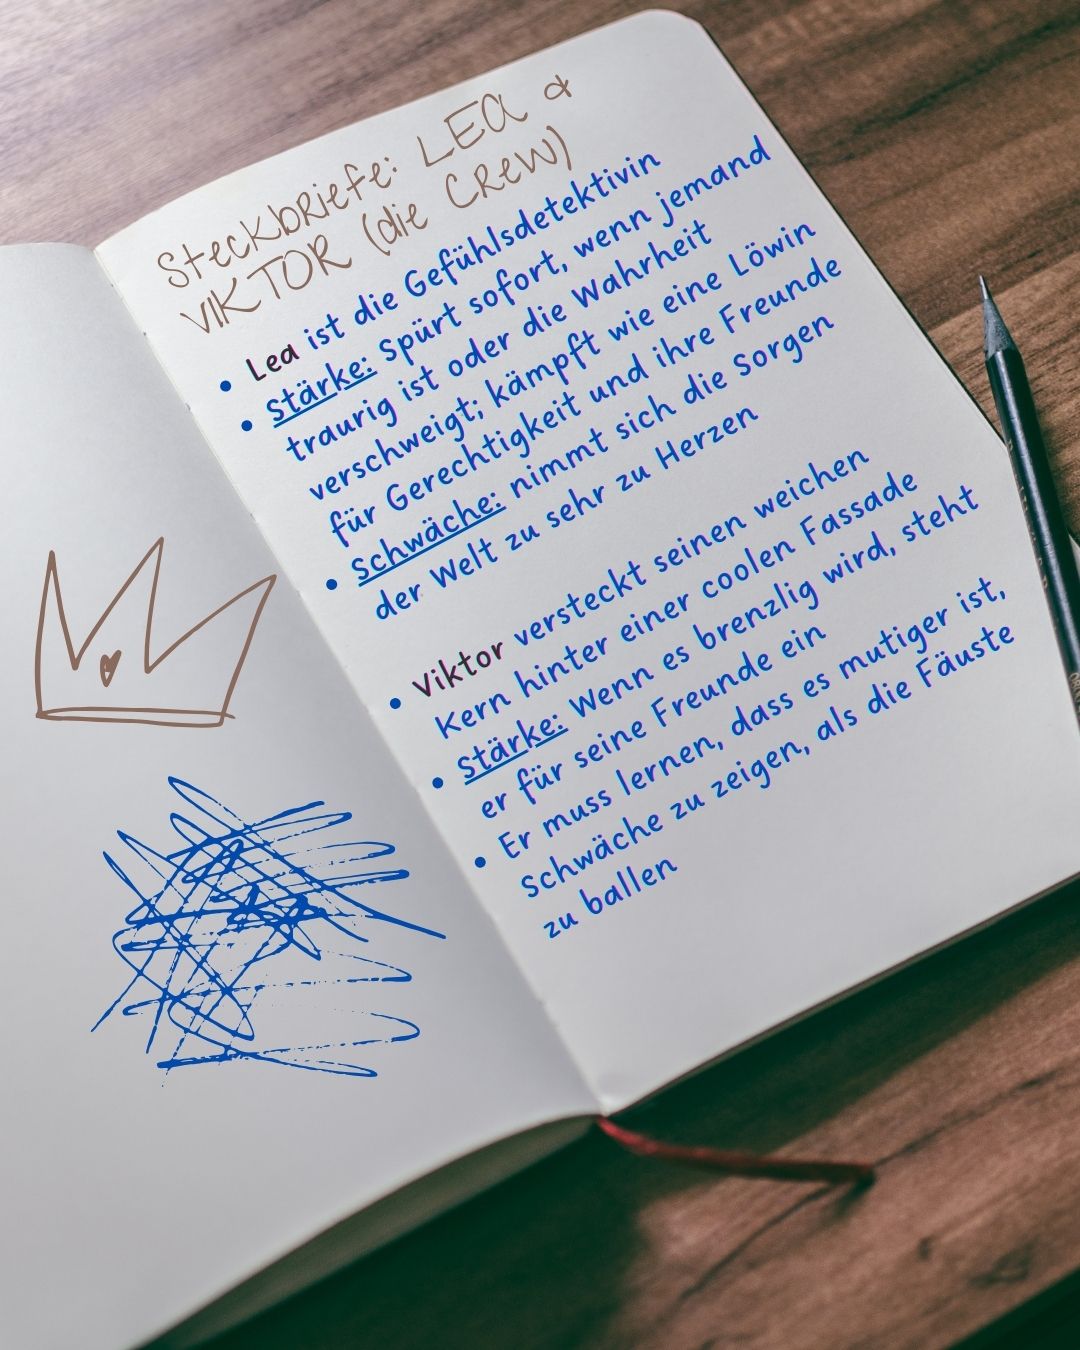 SteckbRiefe: LEa &
VIKTOR (die CReW)
• Lea ist die Gefühlsdetektivin
• Stärke: Spürt sofort, wenn jemand
traurig ist oder die Wahrheit
verschweigt; kämpft wie eine Löwin
für Gerechtigkeit und ihre Freunde
• Schwäche: nimmt sich die Sorgen
der Welt zu sehr zu Herzen
• Viktor versteckt seinen weichen
Kern hinter einer coolen Fassade
• Stärke: Wenn es brenzlig wird, steht
er für seine Freunde ein
• Er muss lernen, dass es mutiger ist,
Schwäche zu zeigen, als die Fäuste
zu ballen